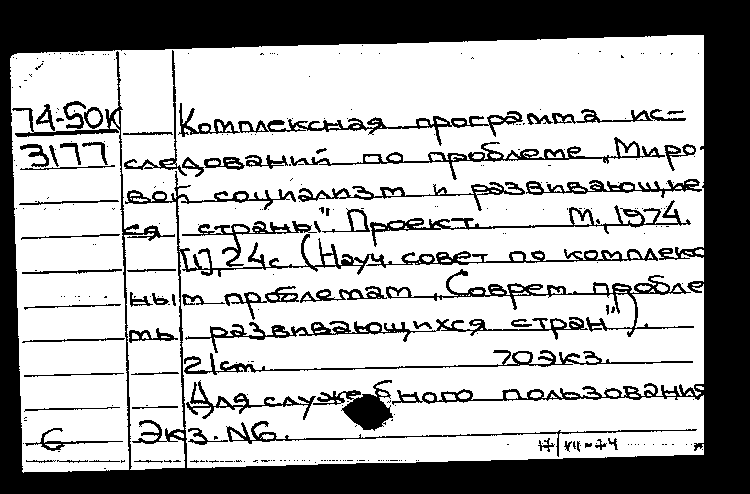 74-50К Комплексная программа ис=
3177 следований по проблеме „Миро-
вой социализм и развивающие
ся страны". Проект. М., 1974.
[1], 24с. (Науч. совет по комплекс
ным проблемам „Соврем. пробле
мы развивающихся стран").
21см. 70экз.
Для служебного пользования
6 Экз. №6.
17/XII-74